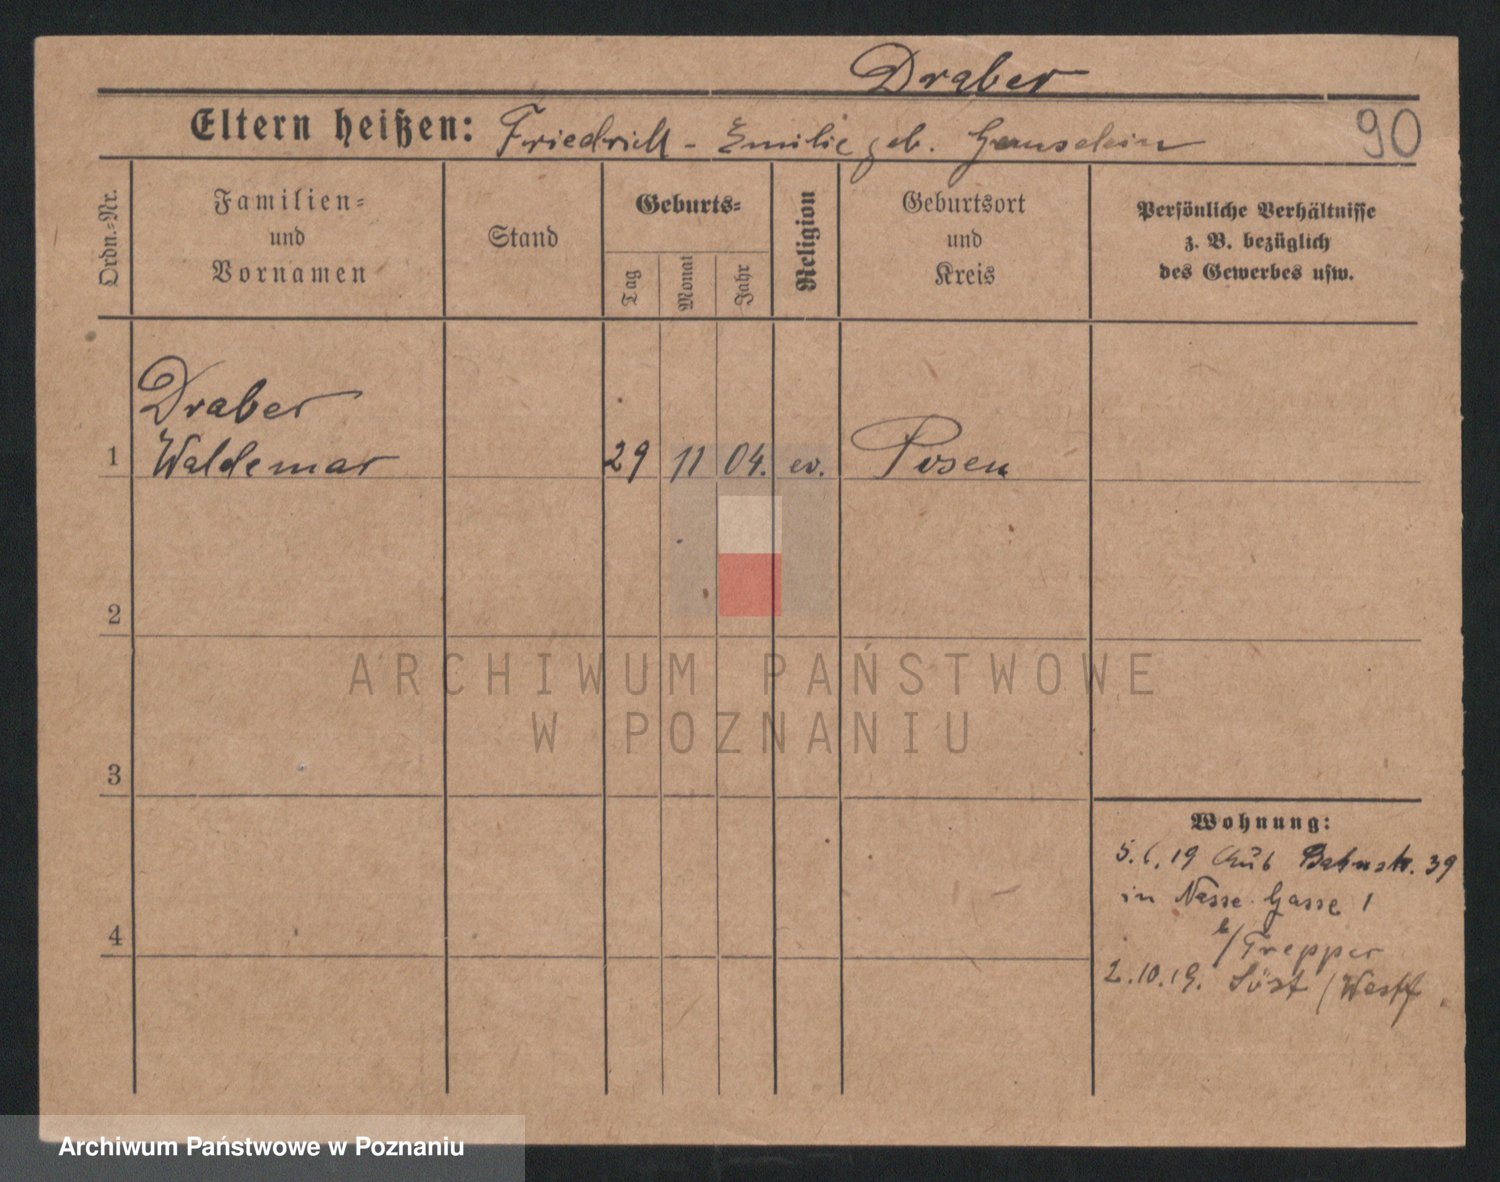 Draber
Eltern heißen: Friedrich - Emilie geb.
90
Ordn.-Nr.
Familien=
und
Vornamen
Stand
Geburts=
Tag
Monat
Jahr
Religion
Geburtsort
und
Kreis
Persönliche Verhältnisse
z. B. bezüglich
des Gewerbes usw.
Draber
1 Waldemar 29 11 04. ev. Posen
2
3
4
Wohnung:
19 Bahnstr. 39
in Nasse Gasse 1
b/Trepper
2.10.19. Söst /Westf
ARCHIWUM PAŃSTWOWE
W POZNANIU
Archiwum Państwowe w Poznaniu